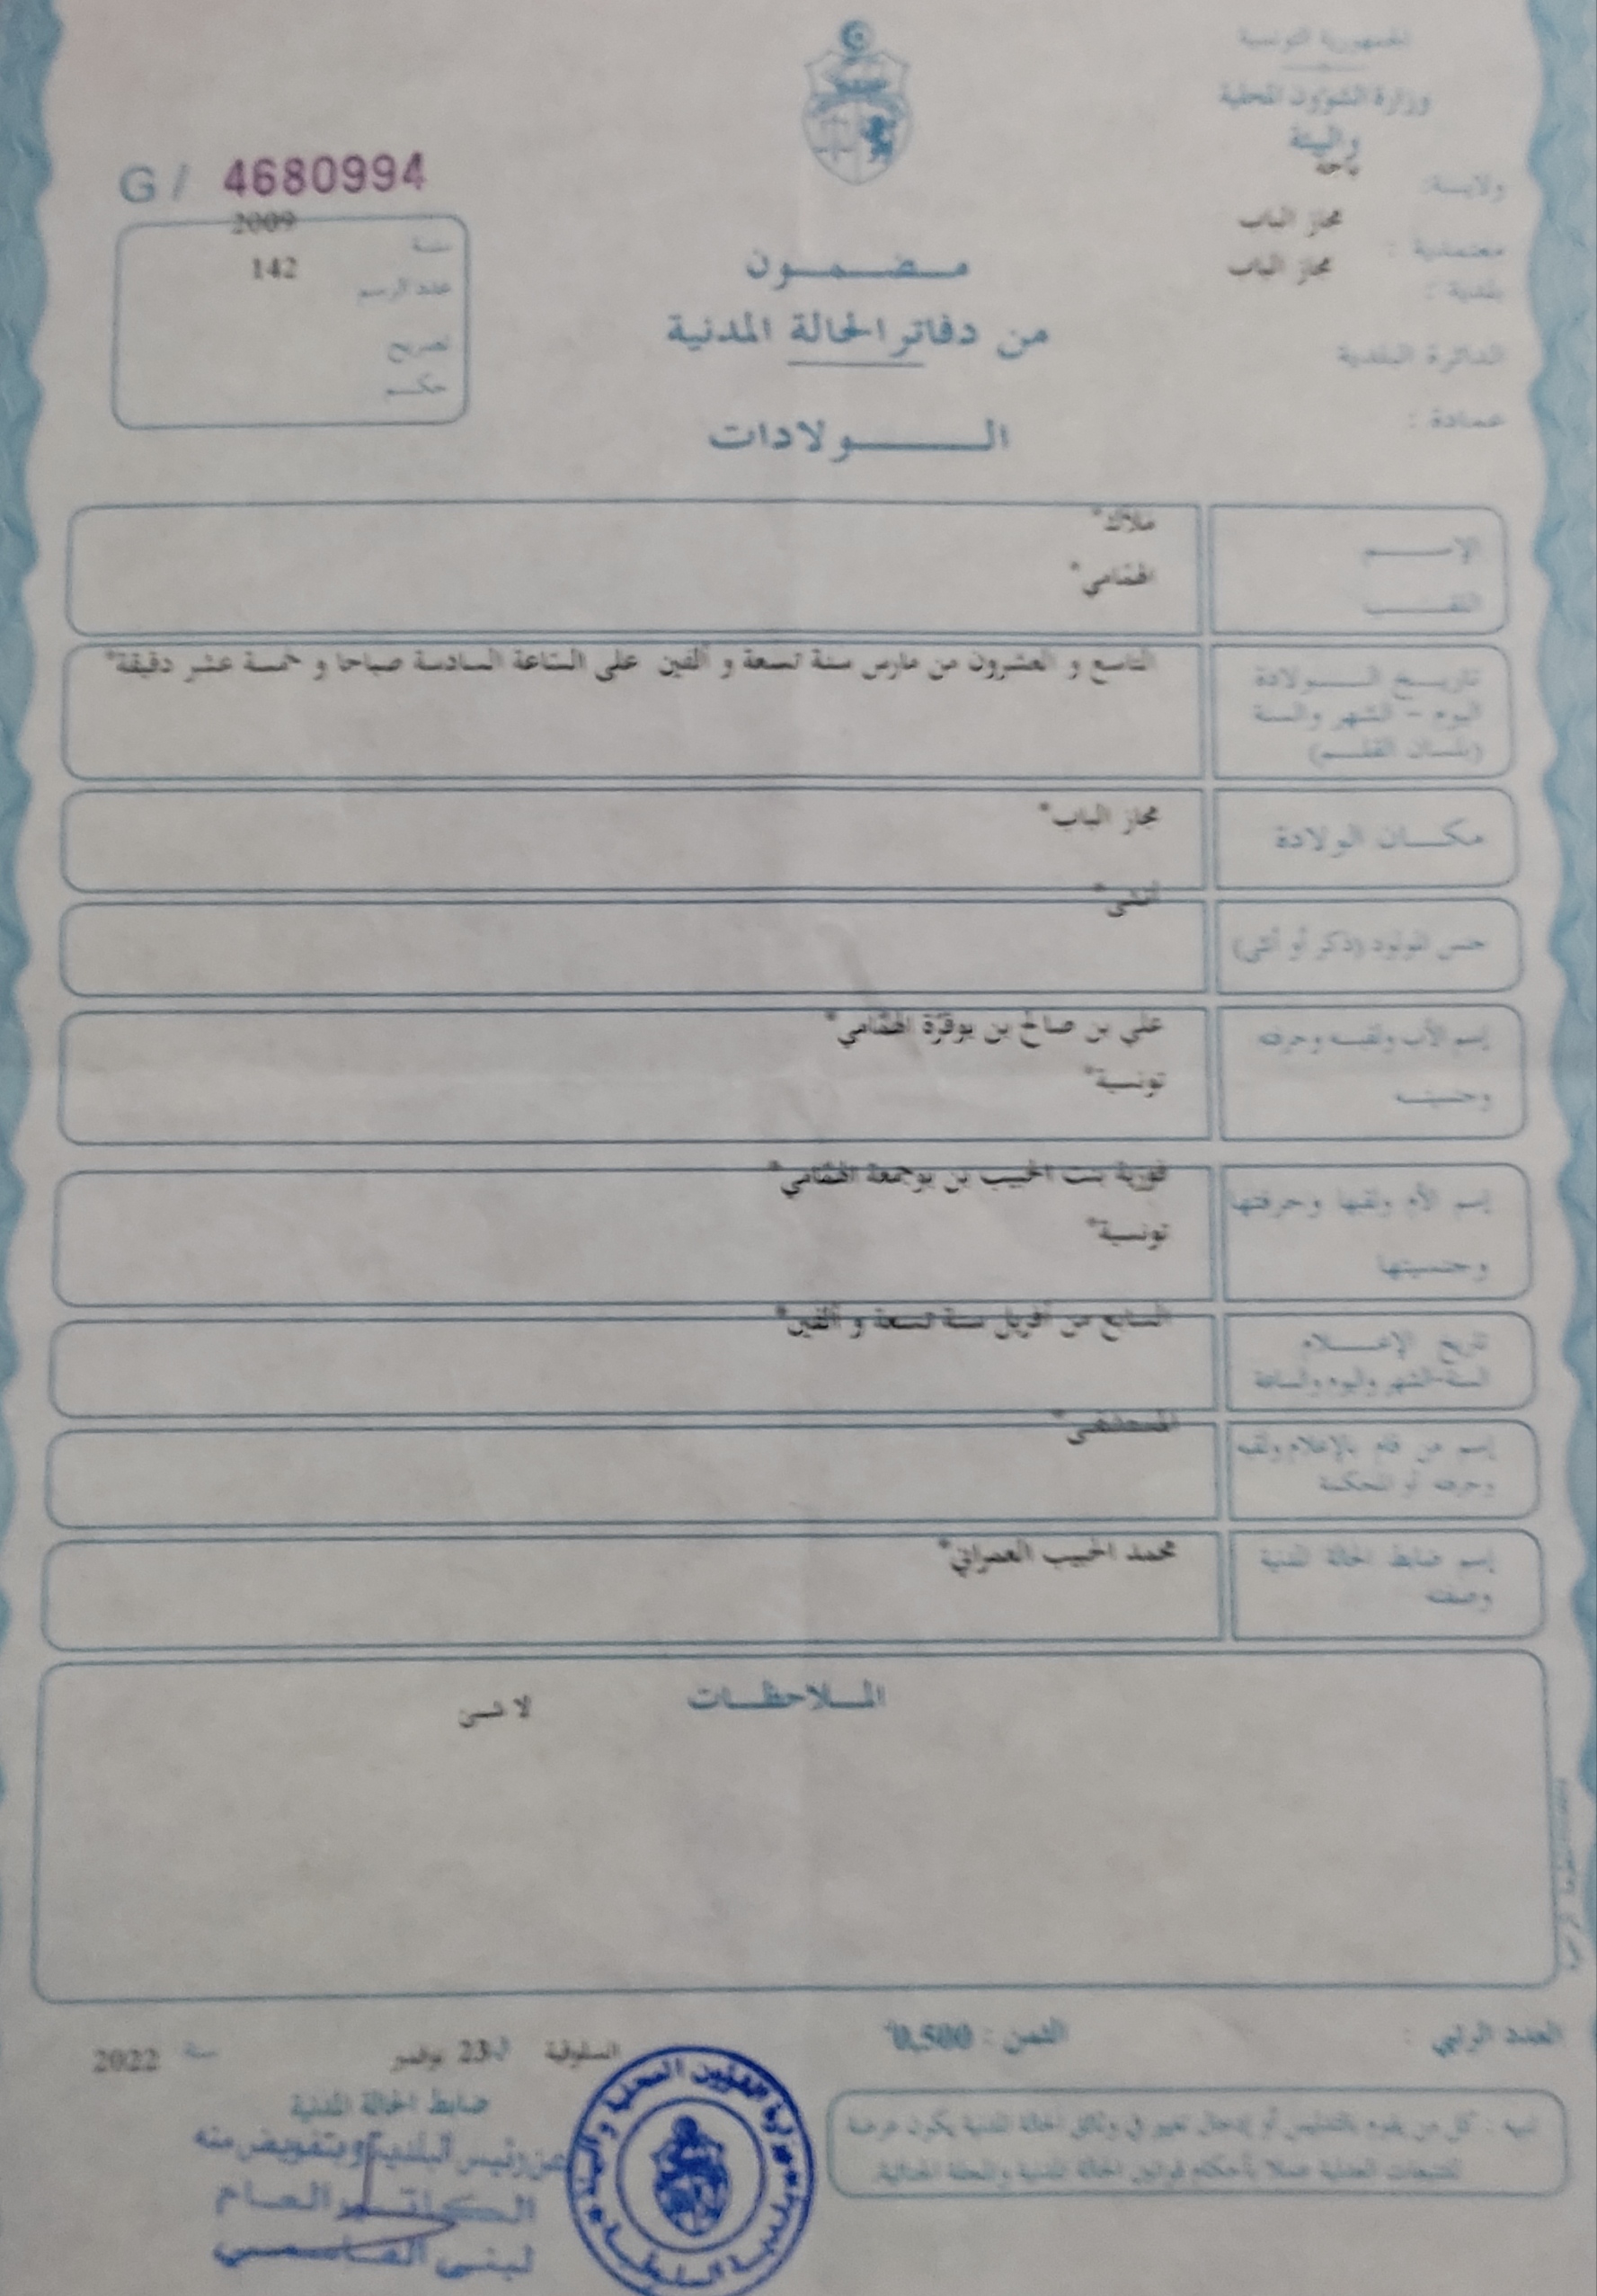 الجمهورية التونسية
وزارة الشؤون المحلية
والبيئة
ولايـة: باجة
معتمدية : مجاز الباب
بلدية : مجاز الباب
الدائرة البلدية
عمادة :
G / 4680994
سنة 2009
عدد الرسم 142
تصريح
حكم
مضمون
من دفاتر الحالة المدنية
الولادات
الإسم ملاك*
اللقب الهمّامي*
تاريخ الولادة
اليوم - الشهر والسنة
(بلسان القلم)
التاسع و العشرون من مارس سنة تسعة و ألفين على الساعة السادسة صباحا و خمسة عشر دقيقة*
مكان الولادة مجاز الباب*
جنس المولود (ذكر أو أنثى) أنثى*
إسم الأب ولقبه وحرفته علي بن صالح بن بوقرّة الهمّامي*
وجنسيته تونسية*
إسم الأم ولقبها وحرفتها فوزية بنت الحبيب بن بوجمعة الهمّامي*
وجنسيتها تونسية*
تاريخ الإعلام
السنة-الشهر واليوم والساعة
السابع من أفريل سنة تسعة و ألفين*
إسم من قام بالإعلام ولقبه
وحرفته أو المحكمة
المستشفى*
إسم ضابط الحالة المدنية
وصفته
محمد الحبيب العمراني*
الملاحظات
لا شيئ
العدد الرتبي :
الثمن : 0,500
السلوقية في 23 نوفمبر سنة 2022
ضابط الحالة المدنية
عن رئيس البلدية وبتفويض منه
الكاتب العام
لبنى القاسمي
تنبيه : كل من يقوم بالتدليس أو إدخال تغيير في وثائق الحالة المدنية يكون عرضة
للتتبعات العدلية عملا بأحكام قوانين الحالة المدنية والمجلة الجنائية.
وزارة الشؤون المحلية والبيئة